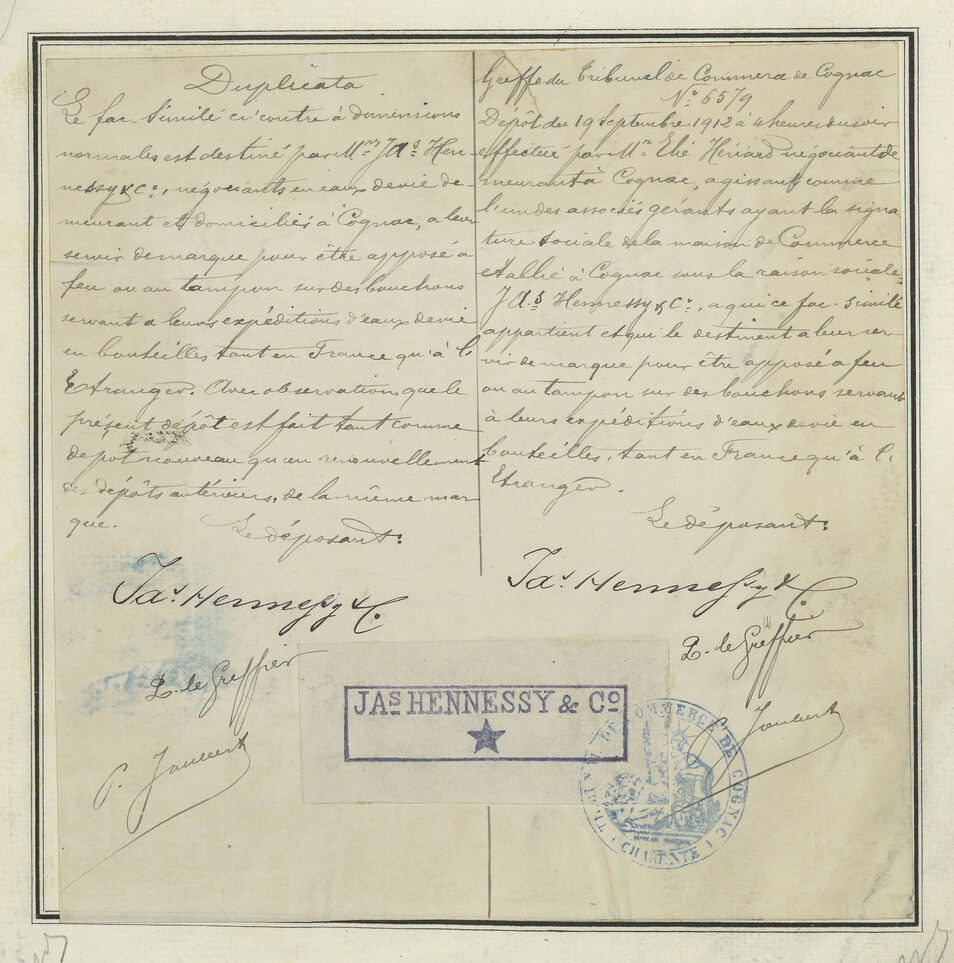 Duplicata
Le fac-Similé ci contre à dimensions
normales est destiné par Mrs Jas Hen-
nessy & Co, négociants en eaux de vie de-
meurant et domiciliés à Cognac, a leur
servir de marque pour être apposé à
feu ou au tampon sur des bouchons
servant a leurs expéditions d'eaux de vie
en bouteilles tant en France qu'à l'
Etranger. Avec observation que le
présent dépôt est fait tant comme
dépôt nouveau qu'en renouvellement
des dépôts antérieurs, de la même mar-
que.
Le déposant:
Jas Hennessy & Co.
P. le Greffier
P. Joubert
Greffe du Tribunal de Commerce de Cognac
No 6579
Dépôt du 19 Septembre 1912 à 4 heures du soir
effectué par Mr Elié Hériard négociant de
meurant à Cognac, agissant comme
l'un des associés gérants ayant la signa
ture sociale de la maison de Commerce
etallié à Cognac sous la raison sociale
Jas Hennessy & Co, a qui ce fac-similé
appartient et qui le destinent a leur ser-
vir de marque pour être apposé a feu
ou au tampon sur des bouchons servant
à leurs expéditions d'eaux de vie en
bouteilles, tant en France qu'à l'
Etranger.
Le déposant:
Jas Hennessy & Co.
P. le Greffier
P. Joubert
JAS HENNESSY & CO
TRIBUNAL DE COMMERCE DE COGNAC
(CHARENTE)